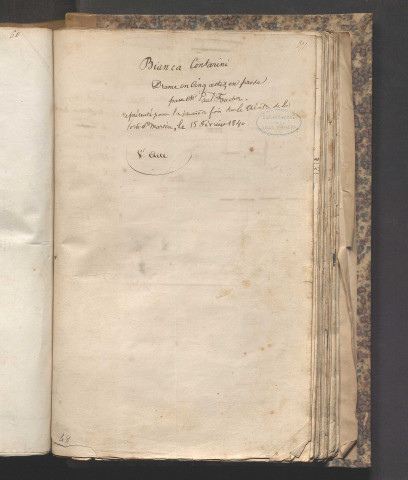 60
Bianca Contarini
Drame en Cinq actes en prose
par Mr Paul Foucher.
représenté pour la première fois sur le théâtre de la
porte St Martin, le 15 Février 1840
5e acte